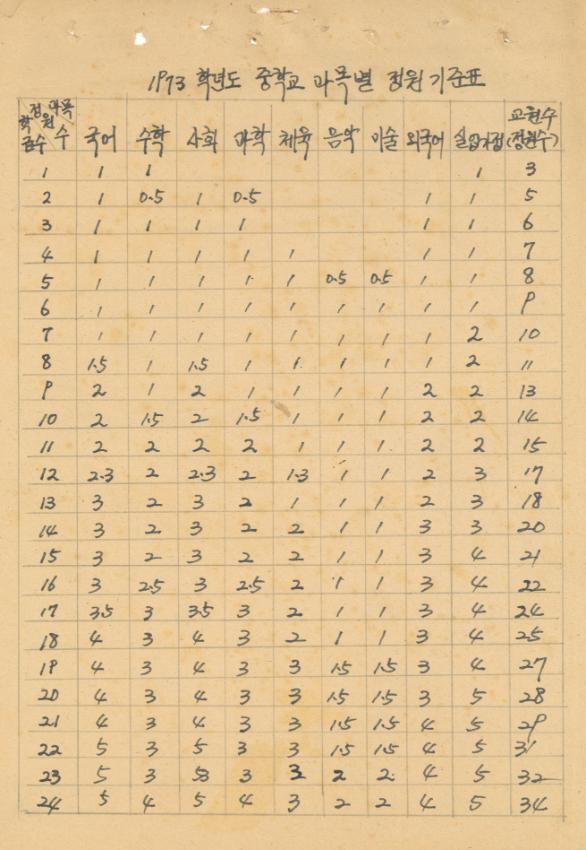 1973 학년도 중학교 과목별 정원 기준표
학급수 정원 과목 수 국어 수학 사회 과학 체육 음악 미술 외국어 실업가정 교원수(정원수)
1 1 1 1 3
2 1 0.5 1 0.5 1 1 5
3 1 1 1 1 1 1 6
4 1 1 1 1 1 1 1 7
5 1 1 1 1 1 0.5 0.5 1 1 8
6 1 1 1 1 1 1 1 1 1 9
7 1 1 1 1 1 1 1 1 2 10
8 1.5 1 1.5 1 1 1 1 1 2 11
9 2 1 2 1 1 1 1 2 2 13
10 2 1.5 2 1.5 1 1 1 2 2 14
11 2 2 2 2 1 1 1 2 2 15
12 2.3 2 2.3 2 1.3 1 1 2 3 17
13 3 2 3 2 1 1 1 2 3 18
14 3 2 3 2 2 1 1 3 3 20
15 3 2 3 2 2 1 1 3 4 21
16 3 2.5 3 2.5 2 1 1 3 4 22
17 3.5 3 3.5 3 2 1 1 3 4 24
18 4 3 4 3 2 1 1 3 4 25
19 4 3 4 3 3 1.5 1.5 3 4 27
20 4 3 4 3 3 1.5 1.5 3 5 28
21 4 3 4 3 3 1.5 1.5 4 5 29
22 5 3 5 3 3 1.5 1.5 4 5 31
23 5 3 3 3 2 2 4 5 32
24 5 4 5 4 3 2 2 4 5 34